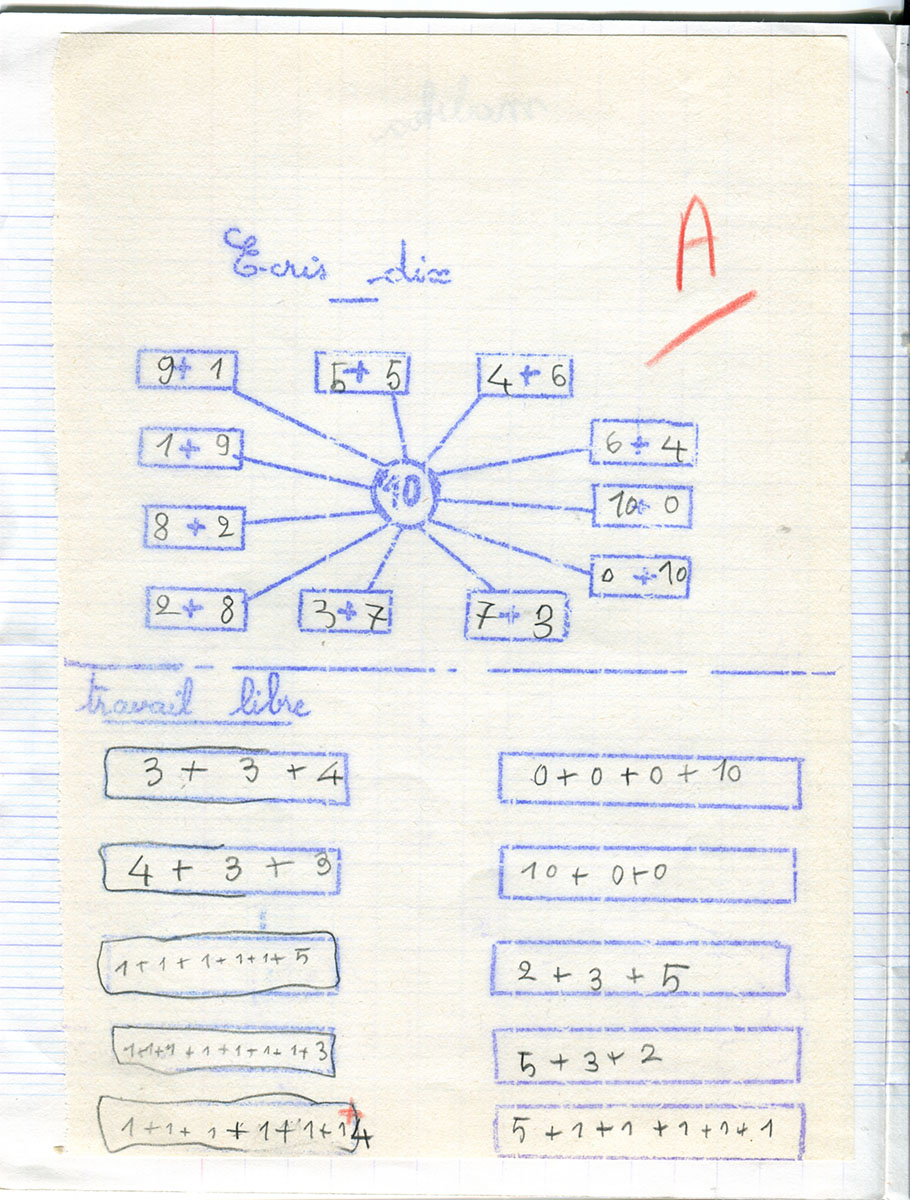 Ecris dix
A
9+ 1
5 + 5
4 + 6
1 + 9
6 + 4
10
8 + 2
10+ 0
0 + 10
2 + 8
3 + 7
7 + 3
travail libre
3 + 3 + 4
0 + 0 + 0 + 10
4 + 3 + 3
10 + 0 + 0
1 + 1 + 1 + 1 + 1 + 5
2 + 3 + 5
1+1+1 + 1 + 1 + 1 + 1 + 3
5 + 3 + 2
1 + 1 + 1 + 1 + 1 + 1 + 4
5 + 1 + 1 + 1 + 1 + 1